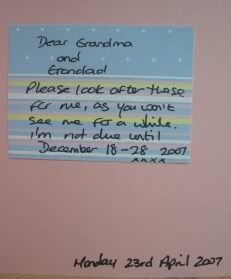 Dear Grandma
and
Grandad
Please look after these
for me, as you won't
see me for a while.
I'm not due until
December 18-28 2007
xxxx
Monday 23rd April 2007